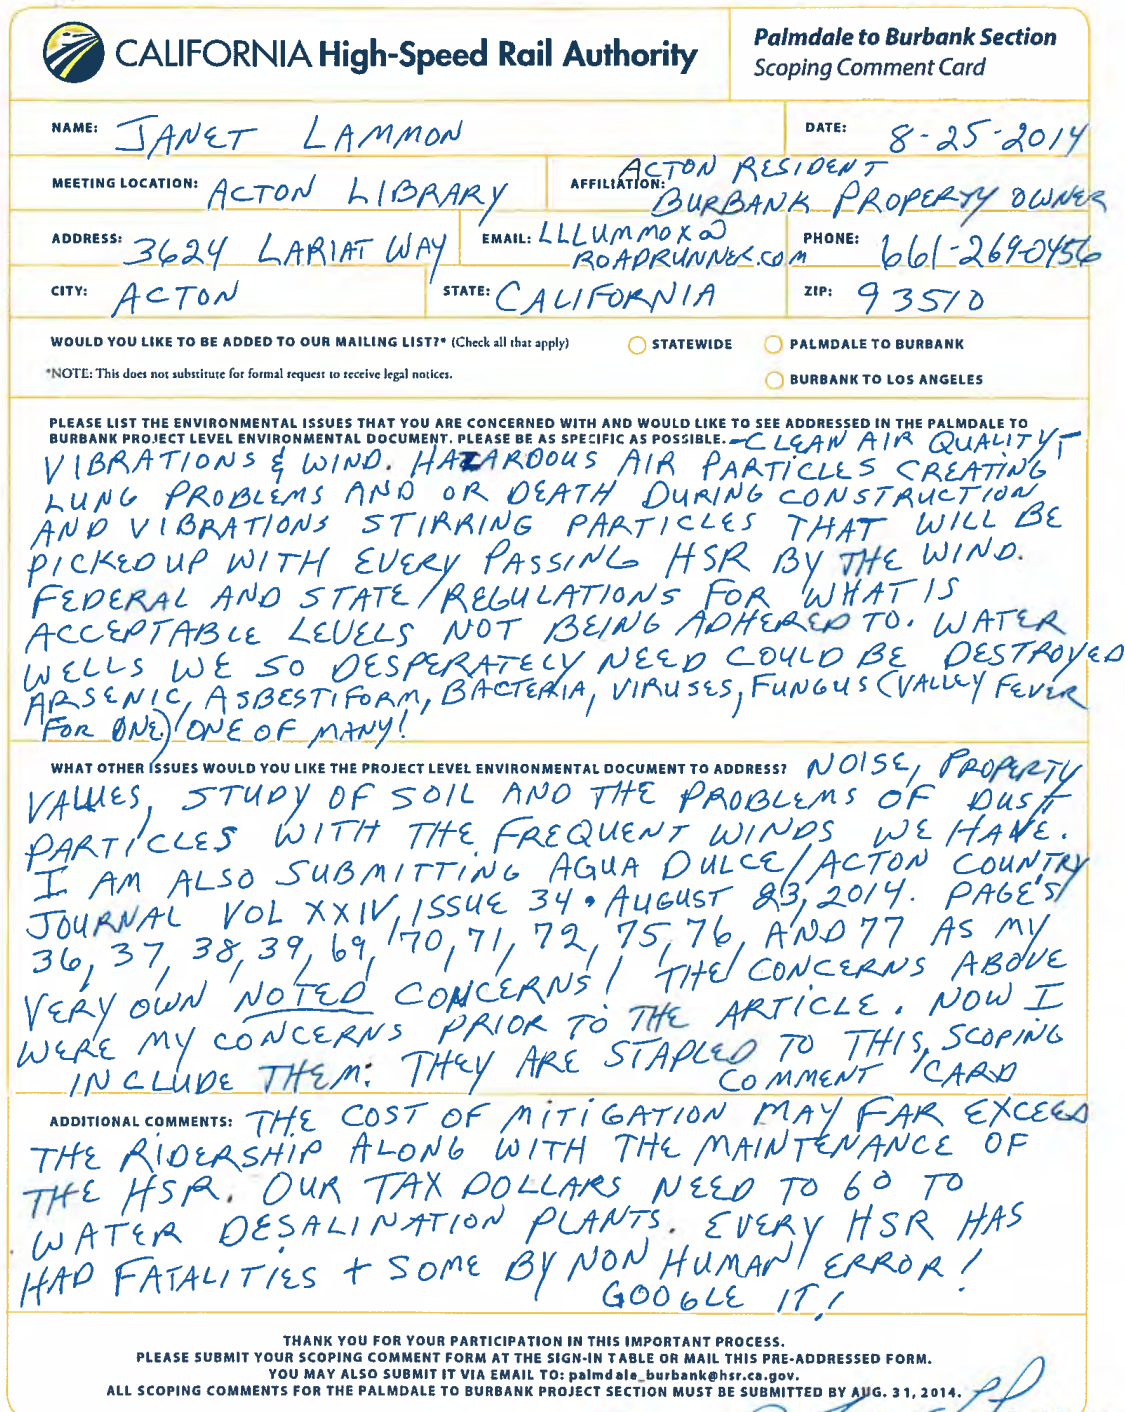 CALIFORNIA High-Speed Rail Authority
Palmdale to Burbank Section
Scoping Comment Card
NAME: JANET LAMMON
DATE: 8-25-2014
MEETING LOCATION: ACTON LIBRARY
AFFILIATION: ACTON RESIDENT
BURBANK PROPERTY OWNER
ADDRESS: 3624 LARIAT WAY
EMAIL: LLLUMMOX@
ROADRUNNER.COM
PHONE: 661-269-0456
CITY: ACTON
STATE: CALIFORNIA
ZIP: 93510
WOULD YOU LIKE TO BE ADDED TO OUR MAILING LIST?* (Check all that apply)
STATEWIDE
PALMDALE TO BURBANK
*NOTE: This does not substitute for formal request to receive legal notices.
BURBANK TO LOS ANGELES
PLEASE LIST THE ENVIRONMENTAL ISSUES THAT YOU ARE CONCERNED WITH AND WOULD LIKE TO SEE ADDRESSED IN THE PALMDALE TO
BURBANK PROJECT LEVEL ENVIRONMENTAL DOCUMENT. PLEASE BE AS SPECIFIC AS POSSIBLE. -CLEAN AIR QUALITY-
VIBRATIONS & WIND. HAZARDOUS AIR PARTICLES CREATING
LUNG PROBLEMS AND OR DEATH DURING CONSTRUCTION
AND VIBRATIONS STIRRING PARTICLES THAT WILL BE
PICKED UP WITH EVERY PASSING HSR BY THE WIND.
FEDERAL AND STATE/REGULATIONS FOR WHAT IS
ACCEPTABLE LEVELS NOT BEING ADHERED TO. WATER
WELLS WE SO DESPERATELY NEED COULD BE DESTROYED
ARSENIC, ASBESTIFORM, BACTERIA, VIRUSES, FUNGUS (VALLEY FEVER
FOR ONE) ONE OF MANY!
WHAT OTHER ISSUES WOULD YOU LIKE THE PROJECT LEVEL ENVIRONMENTAL DOCUMENT TO ADDRESS? NOISE, PROPERTY
VALUES, STUDY OF SOIL AND THE PROBLEMS OF DUST
PARTICLES WITH THE FREQUENT WINDS WE HAVE.
I AM ALSO SUBMITTING AGUA DULCE/ACTON COUNTRY
JOURNAL VOL XXIV, ISSUE 34 • AUGUST 23, 2014. PAGE'S
36, 37, 38, 39, 69, 70, 71, 72, 75, 76, AND 77 AS MY
VERY OWN NOTED CONCERNS! THE CONCERNS ABOVE
WERE MY CONCERNS PRIOR TO THE ARTICLE. NOW I
INCLUDE THEM: THEY ARE STAPLED TO THIS, SCOPING
COMMENT CARD
ADDITIONAL COMMENTS: THE COST OF MITIGATION MAY FAR EXCEED
THE RIDERSHIP ALONG WITH THE MAINTENANCE OF
THE HSR. OUR TAX DOLLARS NEED TO GO TO
WATER DESALINATION PLANTS. EVERY HSR HAS
HAD FATALITIES + SOME BY NON HUMAN ERROR!
GOOGLE IT!
THANK YOU FOR YOUR PARTICIPATION IN THIS IMPORTANT PROCESS.
PLEASE SUBMIT YOUR SCOPING COMMENT FORM AT THE SIGN-IN TABLE OR MAIL THIS PRE-ADDRESSED FORM.
YOU MAY ALSO SUBMIT IT VIA EMAIL TO: palmdale_burbank@hsr.ca.gov.
ALL SCOPING COMMENTS FOR THE PALMDALE TO BURBANK PROJECT SECTION MUST BE SUBMITTED BY AUG. 31, 2014.